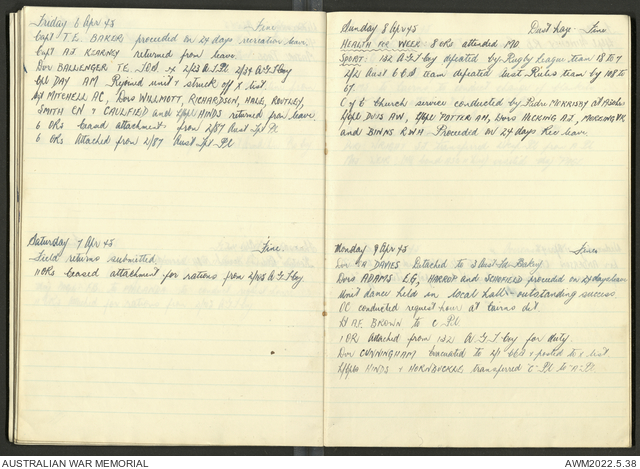 Friday 6 Apr 45 Fine
Capt T.E. BAKER proceeded on 24 days, recreation leave.
Capt A.J. KEARNEY returned from leave.
Dvr BALLENGER T.E. to 2/54 A.G.T Coy
Cpl DAY AM Rejoined unit & struck off X list.
Sgt MITCHELL AC, Dvrs WILLMOTT, RICHARDSON, HALE, ROUTLEY,
SMITH CN & CAULFIELD and L/Cpl HINDS returned from leave
6 ORs ceased attachment from 2/87 Aust Tpt Pl
6 ORs Attached from 2/87 Aust Tpt Pl
Saturday 7 Apr 45 Fine
Field returns submitted.
11 ORs ceased attachment for rations from 2/125 A.G.T Coy
Sunday 8 Apr 45 Dust haze - Fine
HEALTH FOR WEEK 8 ORs attended MO.
SPORT: 132 A.G.T Coy defeated by Rugby League team 18 to 7
2/2 Aust C.C.S team defeated last Rules team by 108 to
67.
C of E Church service conducted by Padre
AW, POTTER AM, Dvrs HOCKING AJ,
and BINNS RWH Proceeded on 24 days Rec leave.
Monday 9 Apr 45 Fine
Dvr A DAVIES Detached to 3 Aust Fd Bakery
Dvrs ADAMS E.G, HARROP and SCHOFIELD proceeded on 24 days leave
Unit dance held in local hall - outstanding success
OC conducted request hour at Cairns det.
Lt A.E. BROWN to C Pl
1 OR Attached from 132 A.G.T Coy for duty.
Dvr CUNNINGHAM Evacuated to 2/1 CCS & posted to X list.
L/Cpls HINDS & HORNBUCKLE transferred "C" Pl to "A" Pl.
AUSTRALIAN WAR MEMORIAL AWM2022.5.38